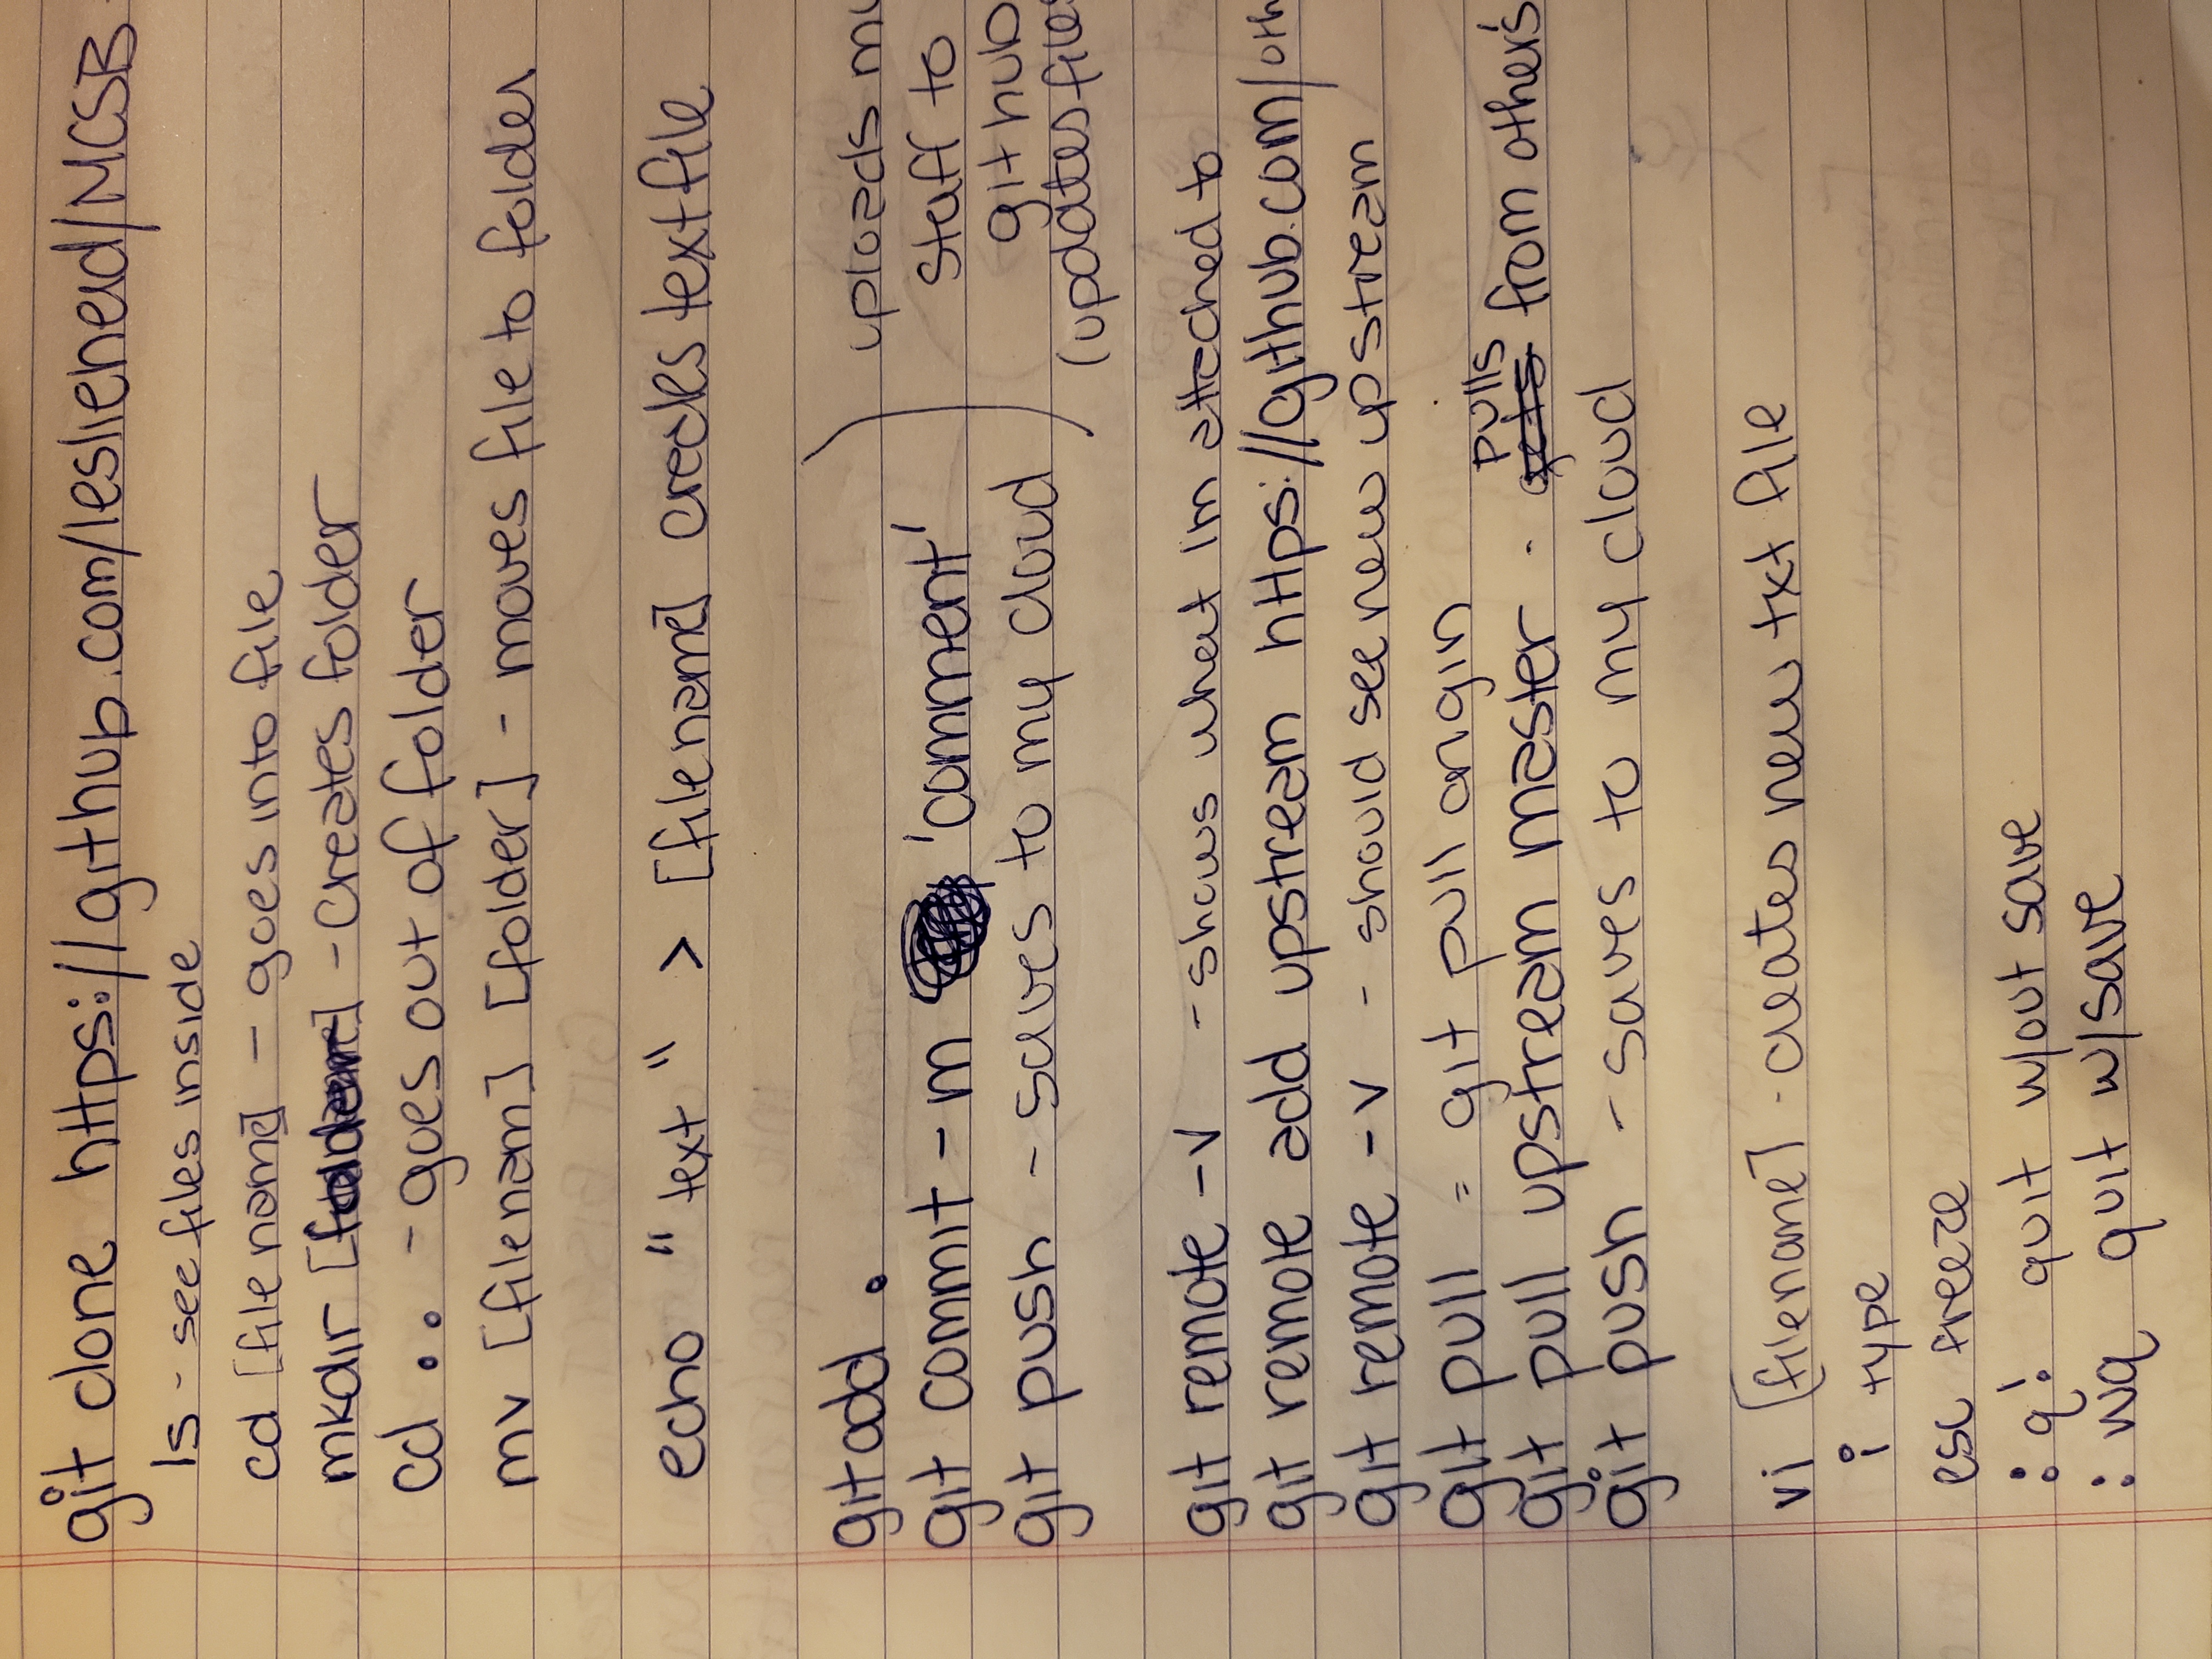 git clone https://github.com/lesliehead/MCSB
ls - see files inside
cd [filename] - goes into file
mkdir [folder] - creates folder
cd .. - goes out of folder
mv [filenam] [folder] - moves file to folder
echo "text" > [filename] creates text file
git add .
git commit -m 'comment'
git push - saves to my cloud
uploads my
staff to
github
(updates files
git remote -v - shows what I'm attached to
git remote add upstream https://github.com/oth
git remote -v - should see new upstream
git pull = git pull origin
git pull upstream master - pulls from other's
git push - saves to my cloud
vi [filename] - creates new txt file
i type
esc freeze
:q! quit w/out save
:wq quit w/save